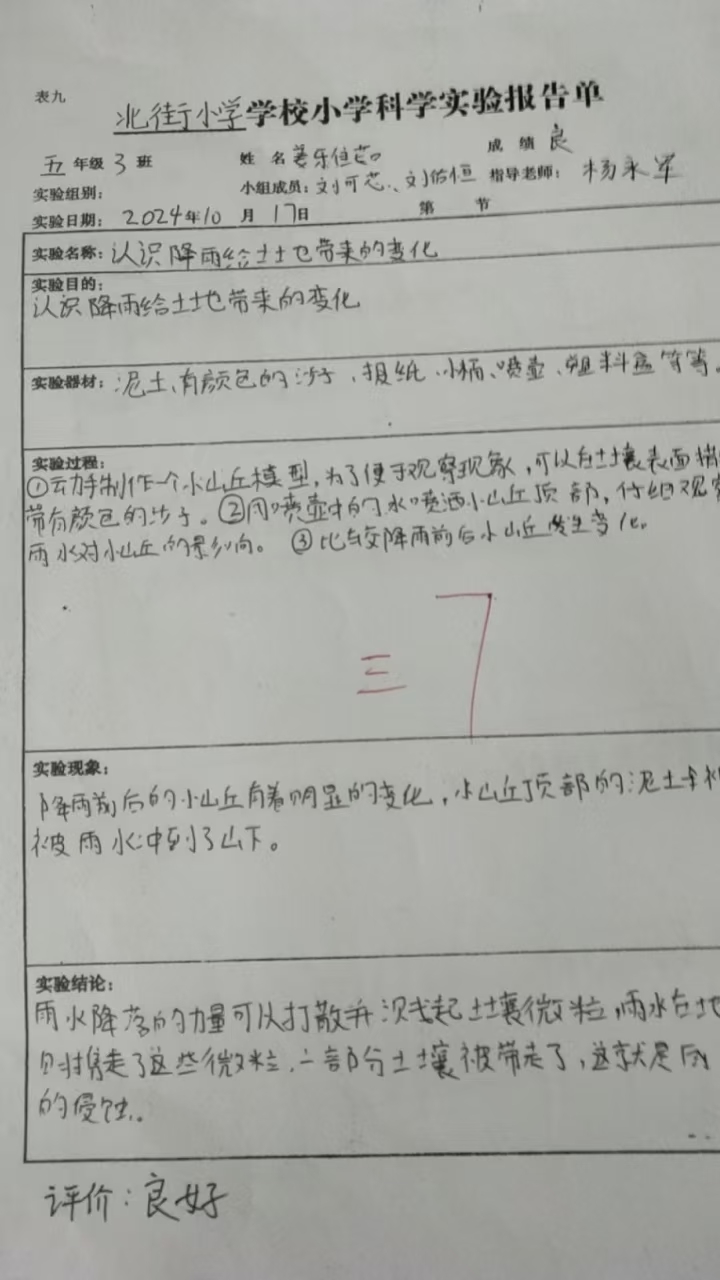 表九
北街小学学校小学科学实验报告单
五年级3班 姓名 姜乐佳芯 成绩 良
实验组别: 小组成员:刘可芯、刘佑恒 指导老师: 杨永军
实验日期: 2024年10月17日 第 节
实验名称:认识降雨给土地带来的变化
实验目的:
认识降雨给土地带来的变化
实验器材:泥土、有颜色的沙子、报纸、小桶、喷壶、塑料盒等等。
实验过程:
①动手制作一个小山丘模型,为了便于观察现象,可以在土壤表面
带有颜色的沙子。②用喷壶中的水喷洒小山丘顶部,仔细观察
雨水对小山丘的影响。③比较降雨前后小山丘发生变化。
三 7
实验现象:
降雨前后的小山丘有着明显的变化,小山丘顶部的泥土
被雨水冲到了山下。
实验结论:
雨水降落的力量可以打散并溅起土壤微粒,雨水在地
时携走了这些微粒,一部分土壤被带走了,这就是
的侵蚀.
评价:良好